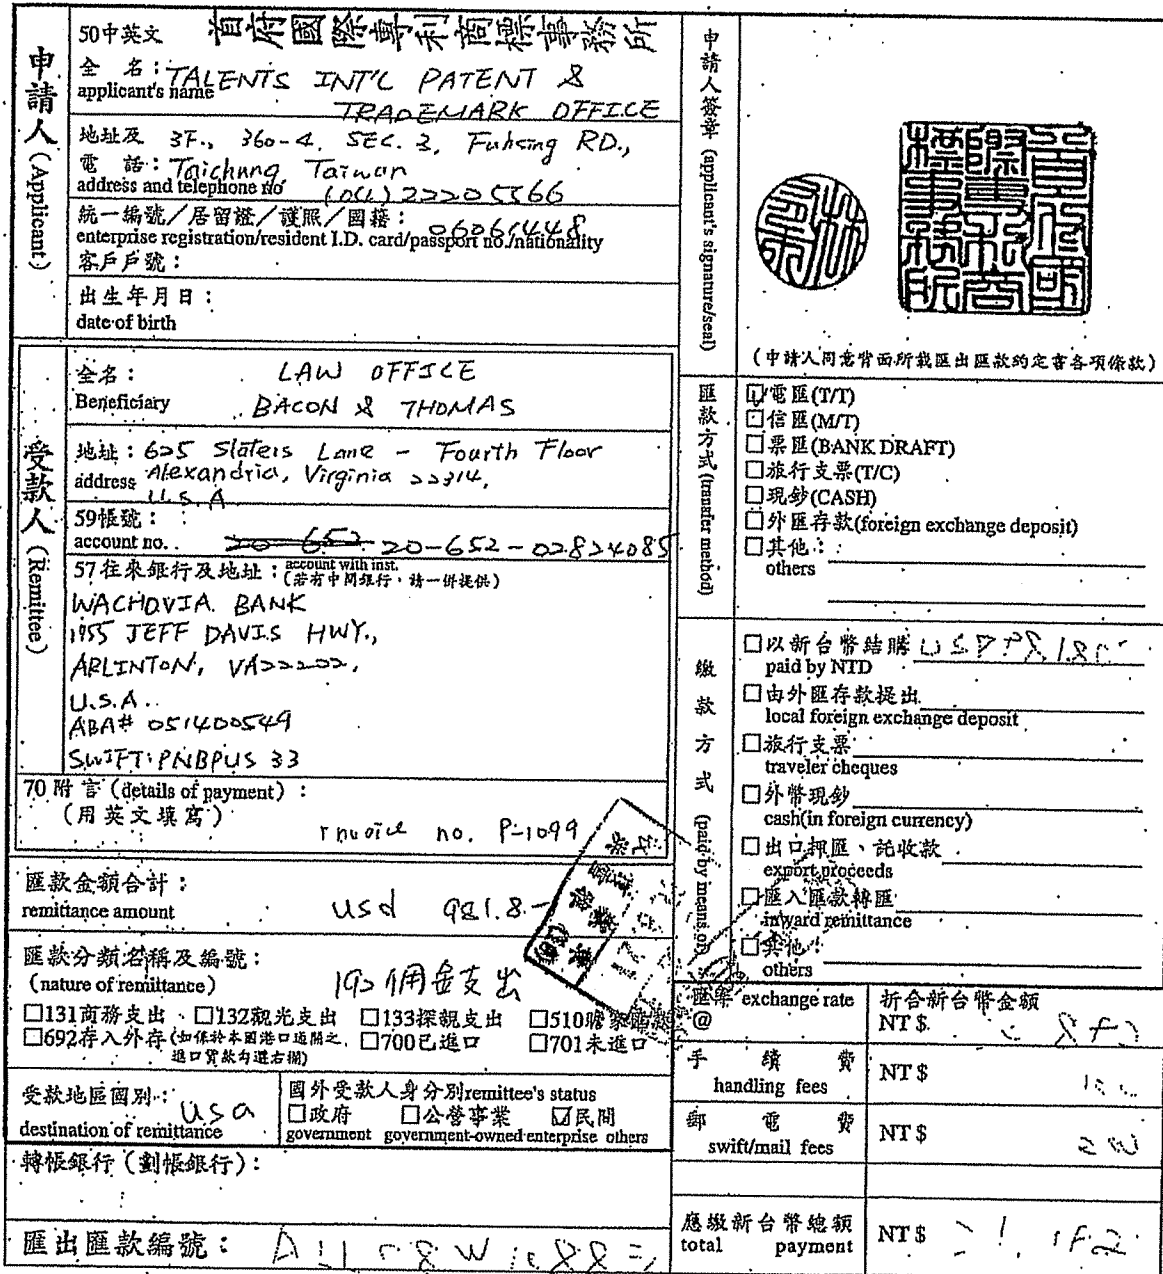 申請人 (Applicant)
50中英文 首府國際專利商標事務所
全 名：TALENTS INT'L PATENT &
applicant's name TRADEMARK OFFICE
地址及 3F., 360-4, SEC. 3, Fuhsing RD.,
電 話：Taichung, Taiwan
address and telephone no (04) 22205566
統一編號／居留證／護照／國籍：06061448
enterprise registration/resident I.D. card/passport no./nationality
客戶戶號：
出生年月日：
date of birth
受款人 (Remittee)
全名： LAW OFFICE
Beneficiary BACON & THOMAS
地址：625 Slaters Lane - Fourth Floor
address Alexandria, Virginia 22314,
U.S.A
59帳號：
account no. 20-652 20-652-02824085
57往來銀行及地址：account with inst.
(若有中間銀行，請一併提供)
WACHOVIA BANK
1955 JEFF DAVIS HWY.,
ARLINTON, VA22202,
U.S.A.
ABA# 051400549
SWIFT: PNBPUS 33
70 附言 (details of payment)：
(用英文填寫)
Invoice no. P-1099
匯款金額合計：
remittance amount usd 981.8-
匯款分類名稱及編號：
(nature of remittance) 192佣金支出
□131商務支出 □132觀光支出 □133探親支出 □510贍家
□692存入外存(如係於本國港口通關之進口貨款勾選右欄) □700已進口 □701未進口
受款地區國別：usa
destination of remittance
國外受款人身分別remittee's status
□政府 □公營事業 ☑民間
government government-owned enterprise others
轉帳銀行 (劃帳銀行)：
匯出匯款編號：
申請人簽章 (applicant's signature/seal)
(申請人同意背面所載匯出匯款約定書各項條款)
匯款方式 (transfer method)
☑電匯(T/T)
□信匯(M/T)
□票匯(BANK DRAFT)
□旅行支票(T/C)
□現鈔(CASH)
□外匯存款(foreign exchange deposit)
□其他：
others
繳款方式 (paid by means of)
□以新台幣結購
paid by NTD
□由外匯存款提出
local foreign exchange deposit
□旅行支票
traveler cheques
□外幣現鈔
cash(in foreign currency)
□出口押匯、託收款
export proceeds
□匯入匯款轉匯
inward remittance
□其他：
others
匯率 exchange rate
@
折合新台幣金額
NT $
手續費
handling fees NT $
郵電費
swift/mail fees NT $
應繳新台幣總額
total payment NT $